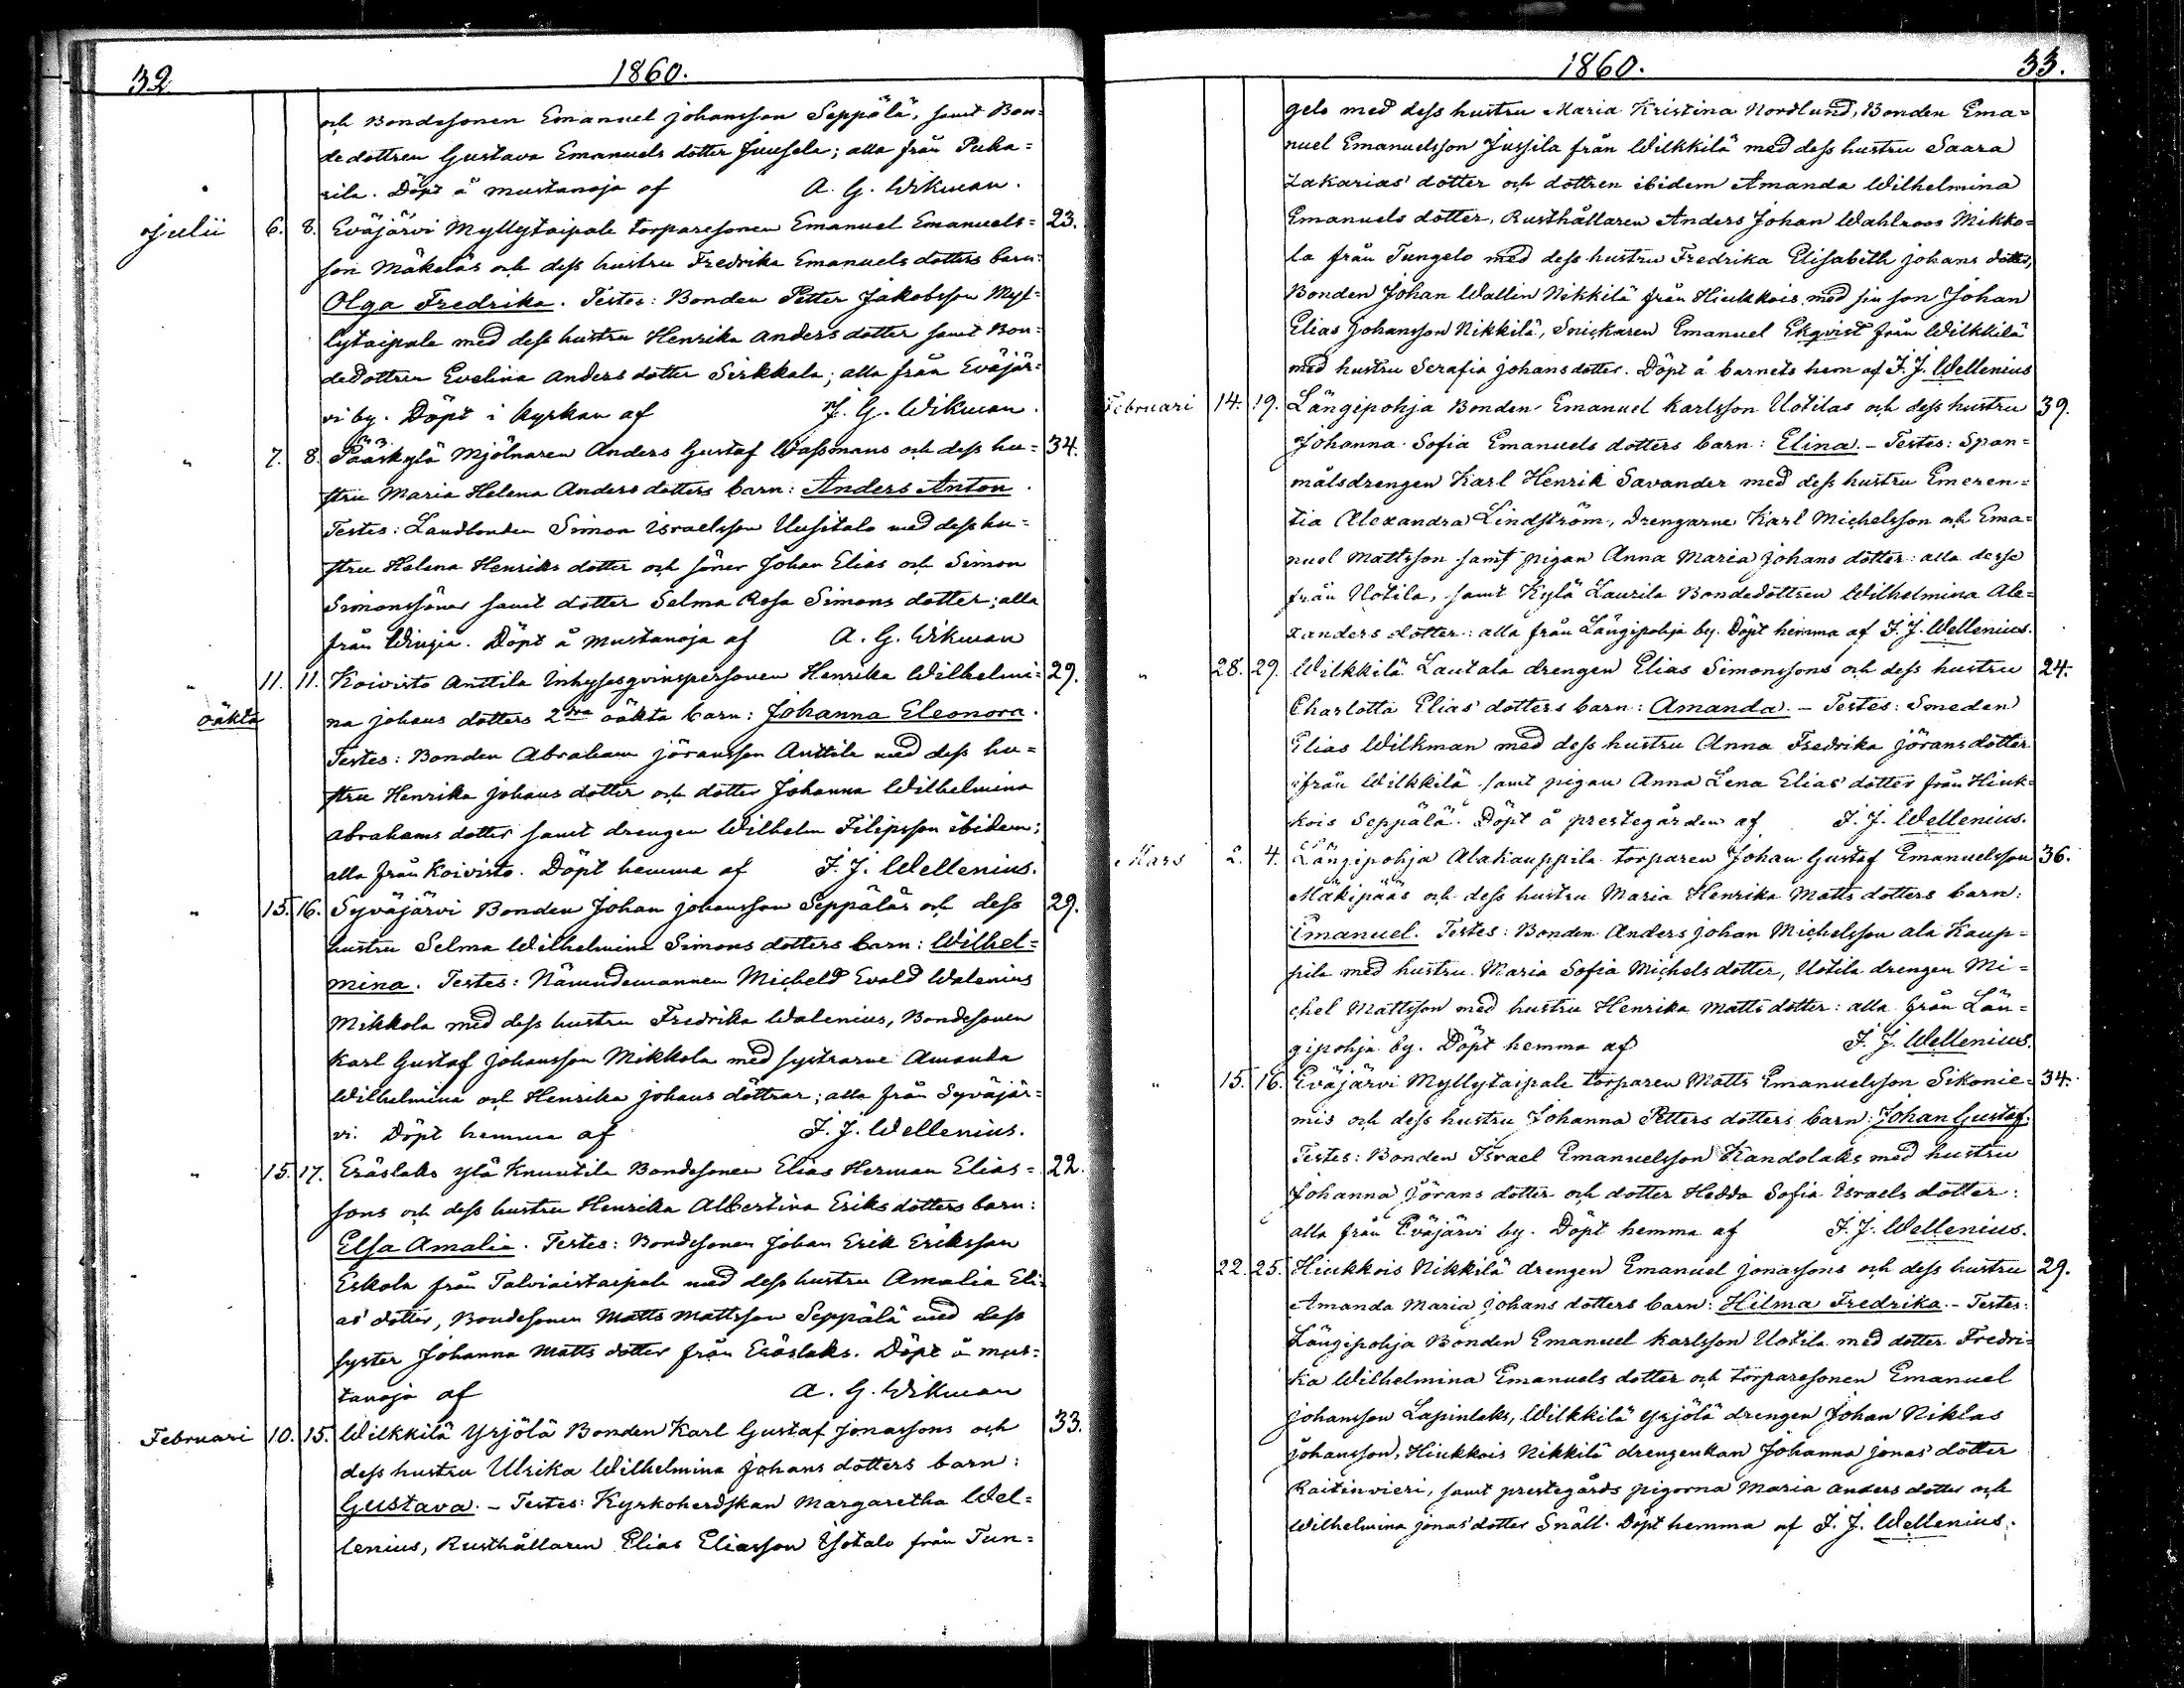 32
1860.
och Bondesonen Emanuel Johansson Seppälä, samt Bon=
dedottren Gustava Emanuels dotter Juusela; alla från Puha=
rila. Döpt å Mustanoja af A. G. Wikman.
Julii 6. 8. Eväjärvi Myllytaipale torparesonen Emanuel Emanuels= 23.
son Mäkeläs och dess hustru Fredrika Emanuels dotters barn:
Olga Fredrika. Testes: Bonden Petter Jakobsson Myl=
lytaipale med dess hustru Henrika Anders dotter samt Bon=
dedottren Evelina Anders dotter Sirkkala; alla från Eväjär=
vi by. Döpt i Kyrkan af J. G. Wikman.
" 7. 8. Pääskylä Mjölnaren Anders Gustaf Wassmans och dess hu= 34.
stru Maria Helena Anders dotters barn: Anders Anton.
Testes: Landbonden Simon Israelsson Uusitalo med dess hu=
stru Helena Henriks dotter och söner Johan Elias och Simon
Simonssöner samt dotter Selma Rosa Simons dotter; alla
från Wingia. Döpt å Mustanoja af A. G. Wikman
" 11. 11. Koivisto Anttila Inhysesqvinspersonen Henrika Wilhelmi= 29.
oäkta na Johans dotters 2dra oäkta barn: Johanna Eleonora.
Testes: Bonden Abraham Jöransson Anttila med dess hu=
stru Henrika Johans dotter och dotter Johanna Wilhelmina
Abrahams dotter samt drengen Wilhelm Filipsson ibidem;
alla från Koivisto. Döpt hemma af J. J. Wellenius.
" 15. 16. Syväjärvi Bonden Johan Johansson Seppäläs och dess 29.
hustru Selma Wilhelmina Simons dotters barn: Wilhel=
mina. Testes: Nämndemannen Micheld Evald Walenius
Mikkola med dess hustru Fredrika Walenius, Bondesonen
Karl Gustaf Johansson Mikkola med systrarne Amanda
Wilhelmina och Henrika Johans döttrar; alla från Syväjär=
vi. Döpt hemma af J. J. Wellenius.
" 15. 17. Eräslaks Ylä Knuutila Bondesonen Elias Herman Elias= 22.
sons och dess hustru Henrika Albertina Eriks dotters barn:
Elsa Amalia. Testes: Bondesonen Johan Erik Eriksson
Eskola från Talviaistaipale med dess hustru Amalia Eli=
as' dotter, Bondesonen Matts Mattsson Seppälä med dess
syster Johanna Matts dotter från Eräslaks. Döpt å Mus=
tanoja af A. G. Wikman
Februari 10. 15. Wilkkilä Yrjölä Bonden Karl Gustaf Jonassons och 33.
dess hustru Ulrika Wilhelmina Johans dotters barn:
Gustava. - Testes: Kyrkoherdskan Margaretha Wel=
lenius, Rusthållaren Elias Eliasson Isotalo från Tun=
1860.
33.
gelo med dess hustru Maria Kristina Nordlund, Bonden Ema=
nuel Emanuelsson Jussila från Wilkkilä med dess hustru Saara
Zakarias' dotter och dottren ibidem Amanda Wilhelmina
Emanuels dotter, Rusthållaren Anders Johan Wahlroos Mikko=
la från Tungelo med dess hustru Fredrika Elisabeth Johans dotter,
Bonden Johan Wallin Nikkilä från Hiukkois med sin son Johan
Elias Johansson Nikkilä, Snickaren Emanuel Ekqvist från Wilkkilä
med hustru Serafia Johans dotter. Döpt å barnets hem af J. J. Wellenius
Februari 14. 19. Längipohja Bonden Emanuel Karlsson Uotilas och dess hustru 39.
Johanna Sofia Emanuels dotters barn: Elina. - Testes: Span=
målsdrengen Karl Henrik Savander med dess hustru Emeren=
tia Alexandra Lindström, drengarne Karl Michelsson och Ema=
nuel Mattsson samt pigan Anna Maria Johans dotter: alla desse
från Uotila, samt Kylä Laurila Bondedottren Wilhelmina Ale=
xanders dotter: alla från Längipohja by. Döpt hemma af J. J. Wellenius.
" 28. 29. Wilkkilä Lautala drengen Elias Simonssons och dess hustru 24.
Charlotta Elias' dotters barn: Amanda. - Testes: Smeden
Elias Wilkman med dess hustru Anna Fredrika Jörans dotter
ifrån Wilkkilä samt pigan Anna Lena Elias' dotter från Hiuk=
kois Seppälä. Döpt å prestegården af J. J. Wellenius.
Mars 2. 4. Längipohja Alakauppila torparen Johan Gustaf Emanuelsson 36.
Mäkipääs och dess hustru Maria Henrika Matts dotters barn:
Emanuel. Testes: Bonden Anders Johan Michelsson Ala Kaup=
pila med hustru Maria Sofia Michels dotter, Uotila drengen Mi=
chel Mattsson med hustru Henrika Matts dotter: alla från Län=
gipohja by. Döpt hemma af J. J. Wellenius.
" 15. 16. Eväjärvi Myllytaipale torparen Matts Emanuelsson Sikonie= 34.
mis och dess hustru Johanna Petters dotters barn: Johan Gustaf.
Testes: Bonden Israel Emanuelsson Kandolaks med hustru
Johanna Jörans dotter och dotter Hedda Sofia Israels dotter:
alla från Eväjärvi by. Döpt hemma af J. J. Wellenius.
" 22. 25. Hiukkois Nikkilä drengen Emanuel Jonassons och dess hustru 29.
Amanda Maria Johans dotters barn: Hilma Fredrika. - Testes:
Längipohja Bonden Emanuel Karlsson Uotila med dotter Fredri=
ka Wilhelmina Emanuels dotter och torparesonen Emanuel
Johansson Lapinlaks, Wilkkilä Yrjölä drengen Johan Niklas
Johansson, Hiukkois Nikkilä drengenkan Johanna Jonas' dotter
Raitinvieri, samt prestegårds pigorna Maria Anders dotter och
Wilhelmina Jonas' dotter Snäll. Döpt hemma af J. J. Wellenius.